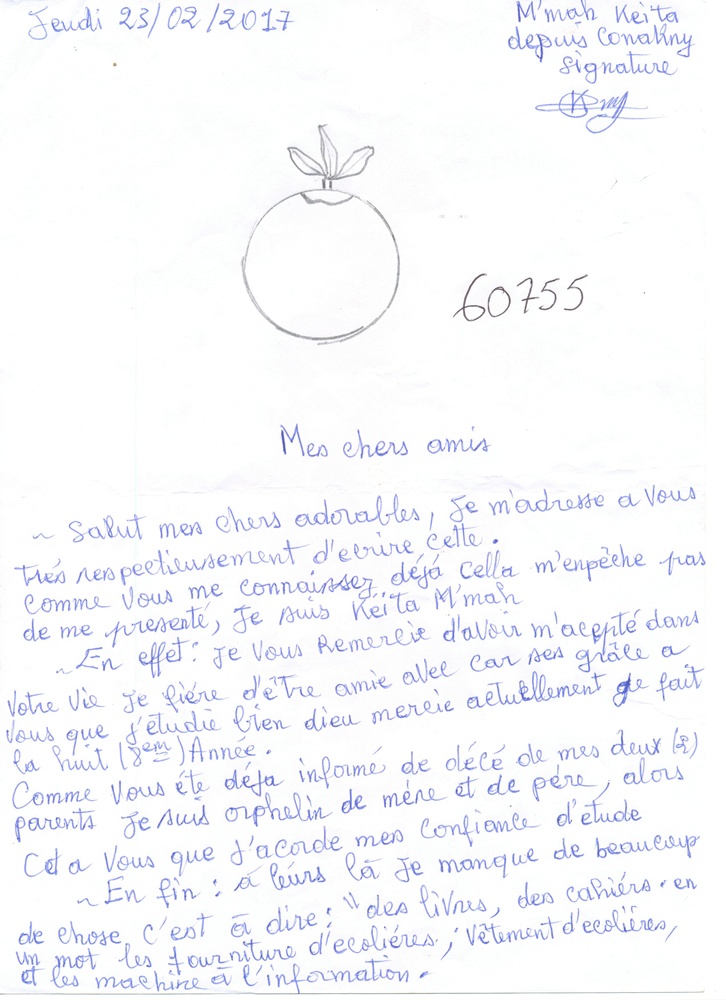 Jeudi 23/02/2017
M'mah Keïta
depuis Conakry
signature
60755
Mes chers amis
~ Salut mes chers adorables, Je m'adresse a Vous
trés respectieusement d'ecrire cette.
Comme Vous me connaissez déjá Cella m'enpêche pas
de me presenté, Je suis Keïta M'mah
~ En effet: Je Vous Remercie d'avoir m'acepté dans
Votre Vie Je fiére d'être amie avec car ses grâce a
Vous que j'étudie bien dieu mercie actuellement je fait
la huit (8em) Année.
Comme Vous éte déja informé de décé de mes deux (2)
parents Je suis orphelin de mére et de pére, alors
Cet a Vous que J'acorde mes Confiance d'étude
~ En fin: á leurs lá Je manque de beaucoup
de chose c'est á dire: "des livres, des cahiérs. en
un mot les fourniture d'ecoliéres, Vêtement d'ecoliéres,
et les machine á l'information.